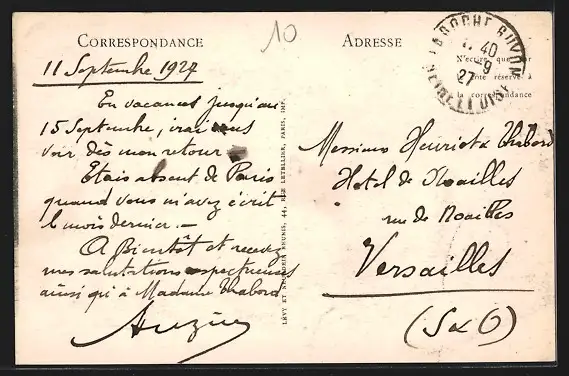 CORRESPONDANCE
10
11 Septembre 1927
En vacances jusqu'au
15 Septembre, irai vous
voir dès mon retour
Etais absent de Paris
quand vous m'avez écrit
le mois dernier. —
A Bientôt et recevez
mes salutations respectueuses
ainsi qu'à Madame Thabord
LÉVY ET NEURDEIN RÉUNIS, 44, RUE LETELLIER, PARIS, IMP.
ADRESSE
LA ROCHE GUYON
40
-9
27
SEINE ET OISE
N'écrire que sur
côté réservé à
la correspondance
Messieurs Henriot & Thabord
Hotel de Noailles
rue de Noailles
Versailles
(S & O)